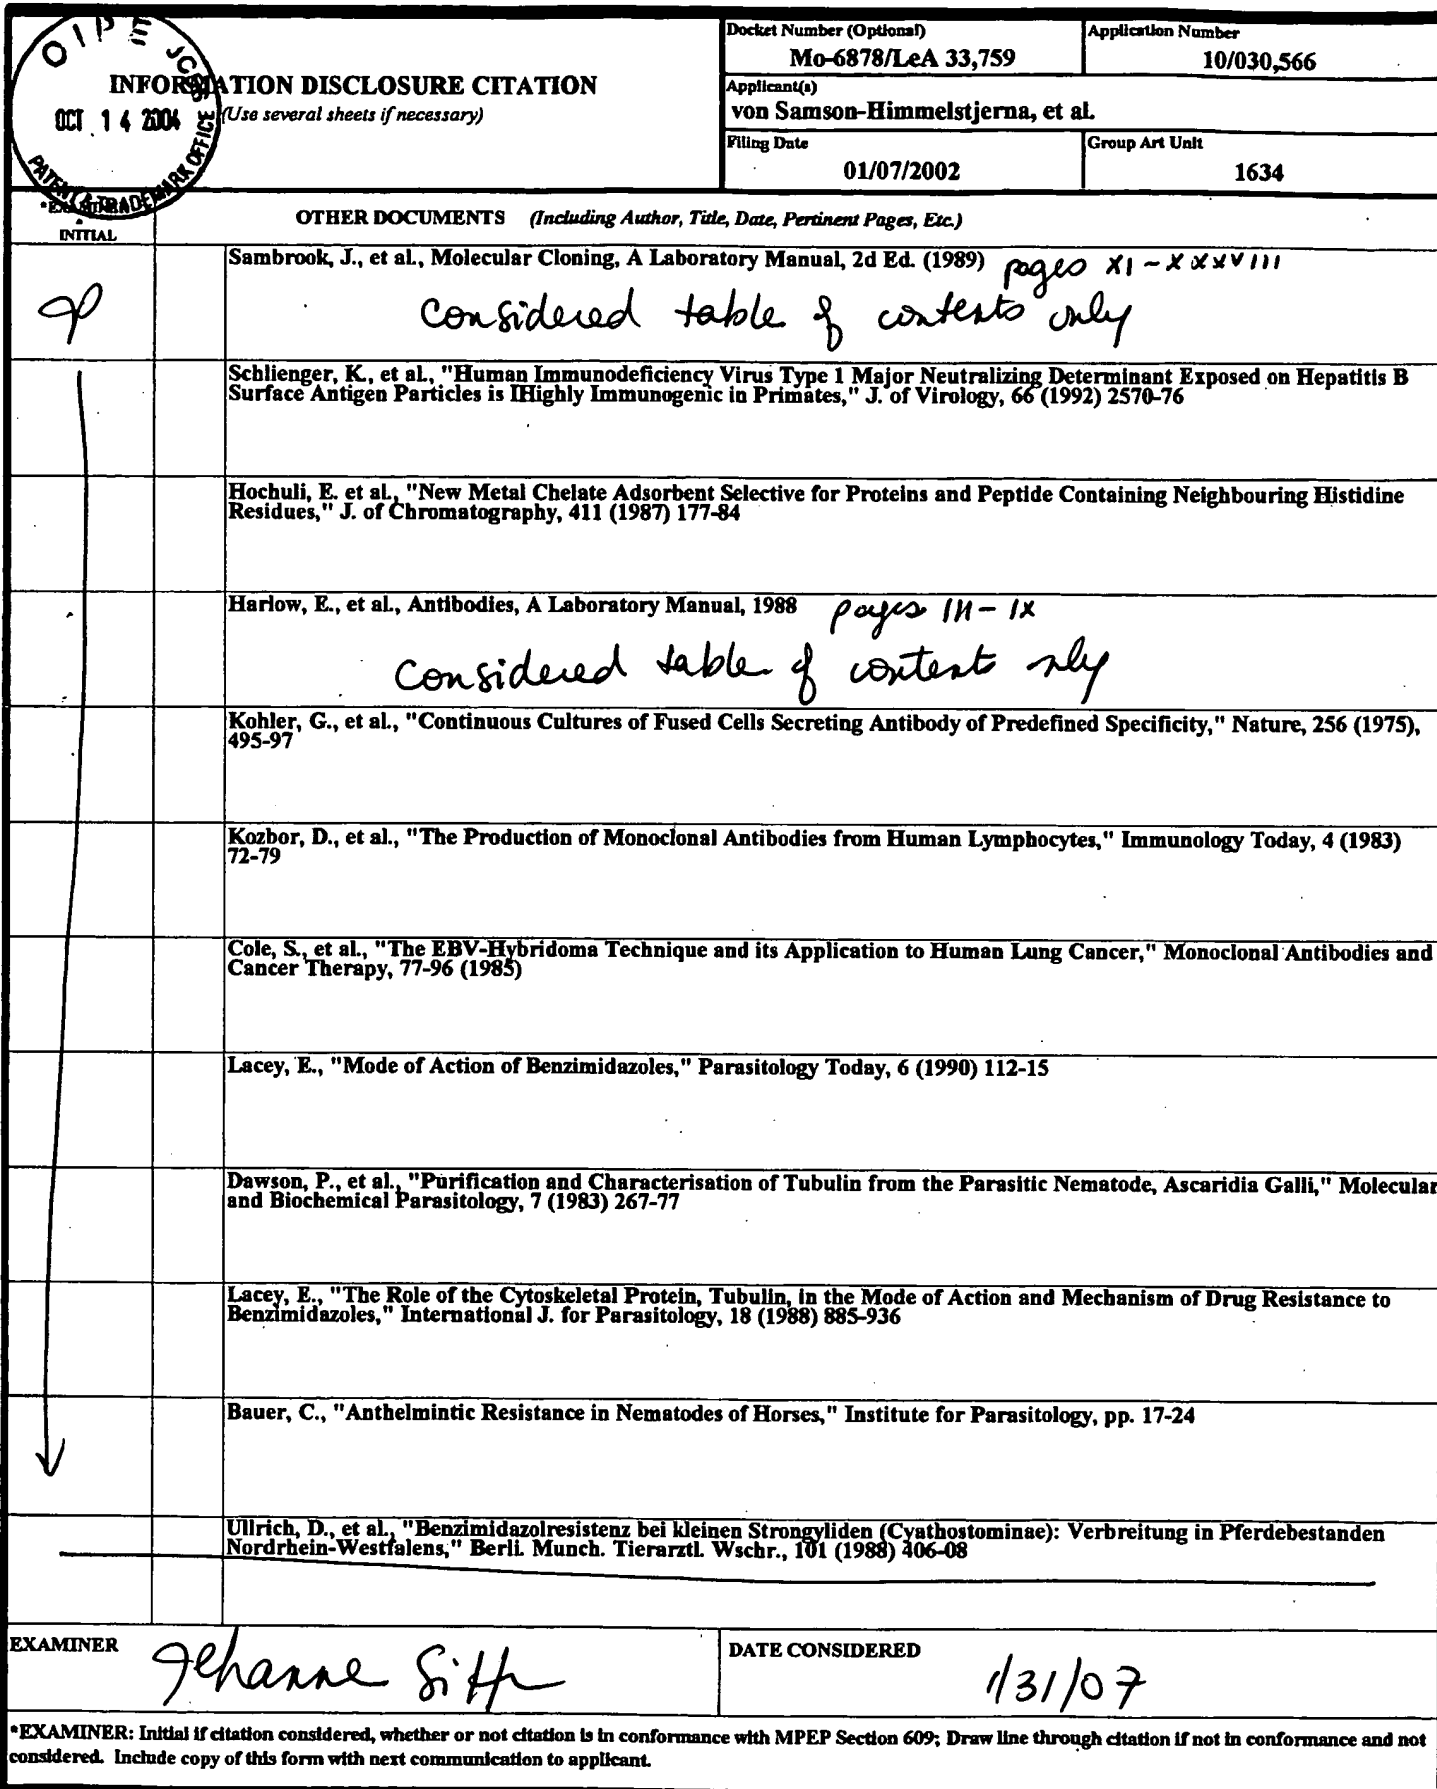 OIPE JC
OCT 14 2004
PATENT & TRADEMARK OFFICE
INFORMATION DISCLOSURE CITATION
(Use several sheets if necessary)
Docket Number (Optional)
Mo-6878/LeA 33,759
Application Number
10/030,566
Applicant(s)
von Samson-Himmelstjerna, et al.
Filing Date
01/07/2002
Group Art Unit
1634
*EXAMINER
INITIAL
OTHER DOCUMENTS (Including Author, Title, Date, Pertinent Pages, Etc.)
Sambrook, J., et al., Molecular Cloning, A Laboratory Manual, 2d Ed. (1989) pages XI-XXXVIII
Considered table of contents only
Schlienger, K., et al., "Human Immunodeficiency Virus Type 1 Major Neutralizing Determinant Exposed on Hepatitis B
Surface Antigen Particles is IHighly Immunogenic in Primates," J. of Virology, 66 (1992) 2570-76
Hochuli, E. et al., "New Metal Chelate Adsorbent Selective for Proteins and Peptide Containing Neighbouring Histidine
Residues," J. of Chromatography, 411 (1987) 177-84
Harlow, E., et al., Antibodies, A Laboratory Manual, 1988 pages III-IX
Considered table of contents only
Kohler, G., et al., "Continuous Cultures of Fused Cells Secreting Antibody of Predefined Specificity," Nature, 256 (1975),
495-97
Kozbor, D., et al., "The Production of Monoclonal Antibodies from Human Lymphocytes," Immunology Today, 4 (1983)
72-79
Cole, S., et al., "The EBV-Hybridoma Technique and its Application to Human Lung Cancer," Monoclonal Antibodies and
Cancer Therapy, 77-96 (1985)
Lacey, E., "Mode of Action of Benzimidazoles," Parasitology Today, 6 (1990) 112-15
Dawson, P., et al., "Purification and Characterisation of Tubulin from the Parasitic Nematode, Ascaridia Galli," Molecular
and Biochemical Parasitology, 7 (1983) 267-77
Lacey, E., "The Role of the Cytoskeletal Protein, Tubulin, in the Mode of Action and Mechanism of Drug Resistance to
Benzimidazoles," International J. for Parasitology, 18 (1988) 885-936
Bauer, C., "Anthelmintic Resistance in Nematodes of Horses," Institute for Parasitology, pp. 17-24
Ullrich, D., et al., "Benzimidazolresistenz bei kleinen Strongyliden (Cyathostominae): Verbreitung in Pferdebestanden
Nordrhein-Westfalens," Berli. Munch. Tierarztl. Wschr., 101 (1988) 406-08
EXAMINER
Jehanne
DATE CONSIDERED
1/31/07
*EXAMINER: Initial if citation considered, whether or not citation is in conformance with MPEP Section 609; Draw line through citation if not in conformance and not
considered. Include copy of this form with next communication to applicant.